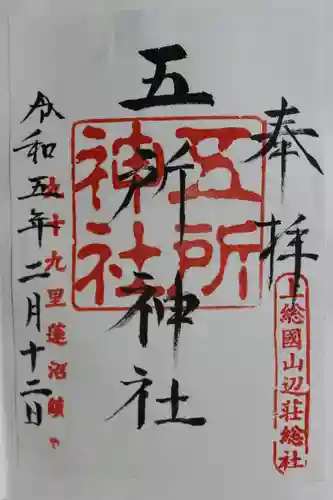 奉拝
上総國山辺荘総社
五所神社
五所神社
九十九里蓮沼鎮
令和五年二月十二日